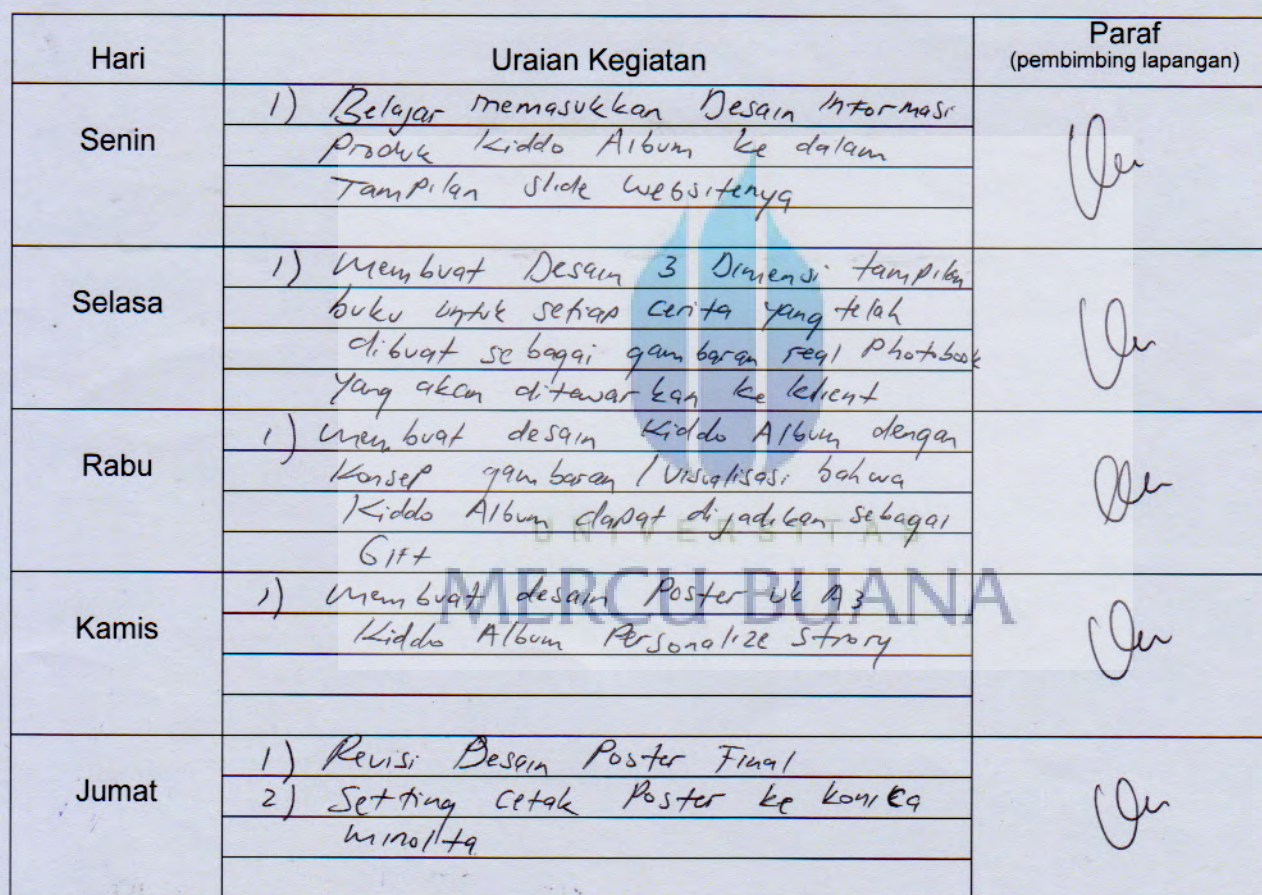 Hari
Uraian Kegiatan
Paraf
(pembimbing lapangan)
Senin
1) Belajar memasukkan Desain Informasi
Produk Kiddo Album ke dalam
Tampilan slide websitenya
Selasa
1) Membuat Desain 3 Dimensi tampilan
buku untuk setiap cerita yang telah
dibuat sebagai gambaran real Photobook
Yang akan ditawarkan ke klient
Rabu
1) Membuat desain Kiddo Album dengan
Konsep gambaran / Visualisasi bahwa
Kiddo Album dapat dijadikan sebagai
Gift
Kamis
1) Membuat desain Poster uk A3
Kiddo Album Personalize Strory
Jumat
1) Revisi Desain Poster Final
2) Setting cetak Poster ke konica
minolta
UNIVERSITAS
MERCU BUANA